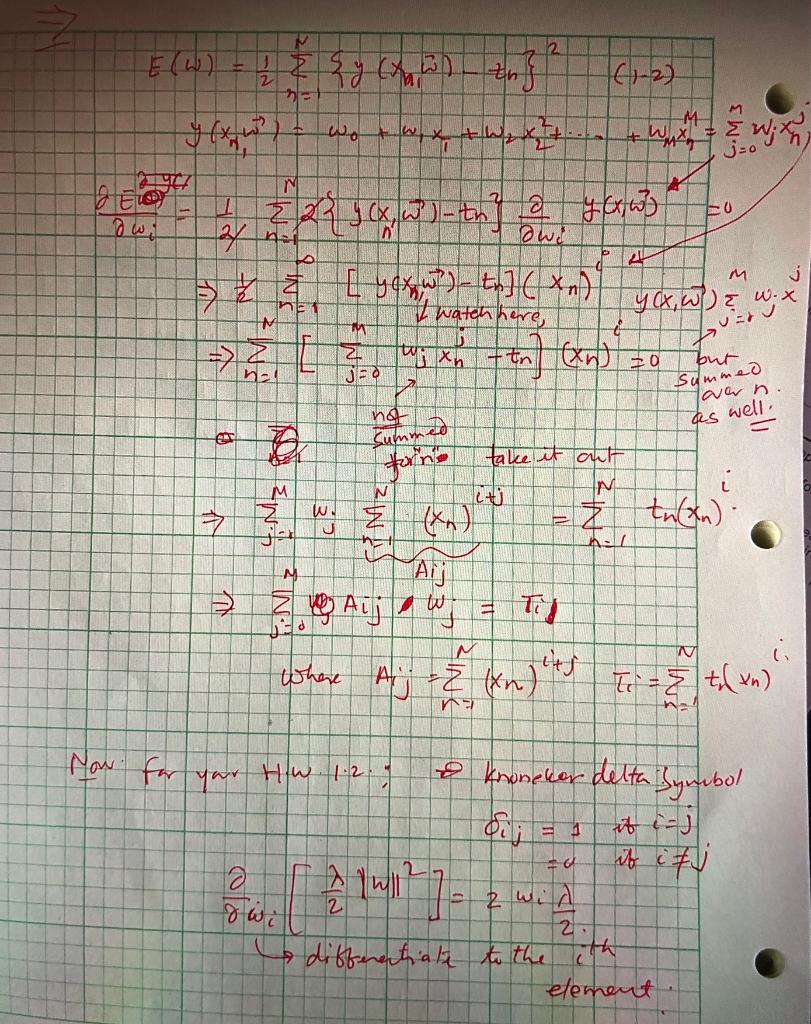 ⇒
E(w) = 1/2 Σ_{n=1}^{N} {y(x_n, w⃗) - t_n}² (1-2)
y(x_n, w⃗) = w₀ + w₁x₁ + w₂x₂² + ... + w_M x_n^M = Σ_{j=0}^{M} w_j x_n^j
∂E/∂w_i = 1/2 Σ_{n=1}^{N} 2{y(x_n, w⃗) - t_n} ∂/∂w_i y(x, w⃗) = 0
⇒ 1/2 Σ_{n=1}^{∞} [y(x_n, w⃗) - t_n] (x_n)^i y(x, w⃗) Σ_{j=1}^{M} w_j x^j
↓ watch here,
⇒ Σ_{n=1}^{N} [Σ_{j=0}^{M} w_j x_n^j - t_n] (x_n)^i = 0
but
summed
over n.
as well.
not
summed
for "n" take it out
⇒ Σ_{j=1}^{M} w_j Σ_{n=1}^{N} (x_n)^{i+j} = Σ_{n=1}^{N} t_n(x_n)^i
A_ij
⇒ Σ_{j=0}^{M} A_ij w_j = T_i
where A_ij = Σ_{n=1}^{N} (x_n)^{i+j} T_i = Σ_{n=1}^{N} t_n(x_n)^i
Now for your H.W. 1.2.; knoneker delta symbol
δ_ij = 1 if i=j
=0 if i≠j
∂/∂w_i [λ/2 ||w||²] = 2 w_i λ/2.
↳ differentiate to the ith
element.